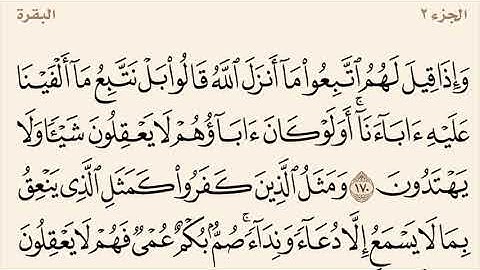 الجزء ٢ البقرة
وَإِذَا قِيلَ لَهُمُ ٱتَّبِعُوا۟ مَآ أَنزَلَ ٱللَّهُ قَالُوا۟ بَلْ نَتَّبِعُ مَآ أَلْفَيْنَا
عَلَيْهِ ءَابَآءَنَآ ۗ أَوَلَوْ كَانَ ءَابَآؤُهُمْ لَا يَعْقِلُونَ شَيْـًٔا وَلَا
يَهْتَدُونَ ١٧٠ وَمَثَلُ ٱلَّذِينَ كَفَرُوا۟ كَمَثَلِ ٱلَّذِى يَنْعِقُ
بِمَا لَا يَسْمَعُ إِلَّا دُعَآءً وَنِدَآءً ۚ صُمٌّۢ بُكْمٌ عُمْىٌ فَهُمْ لَا يَعْقِلُونَ